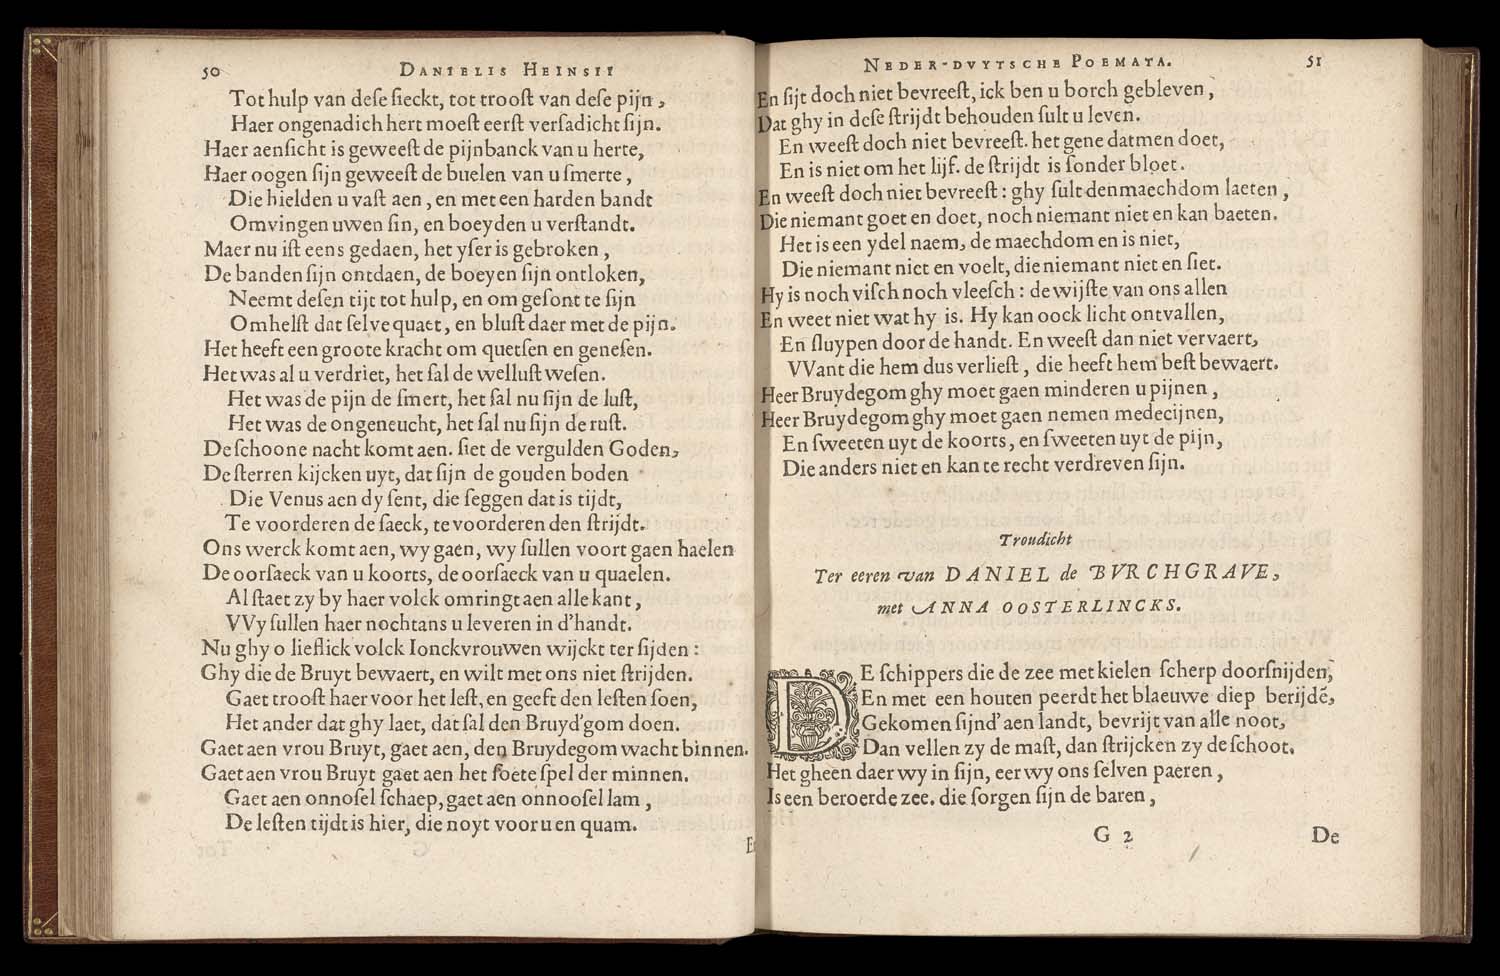 50 DANIELIS HEINSII
Tot hulp van deſe ſieckt, tot trooſt van deſe pijn,
Haer ongenadich hert moeſt eerſt verſadicht ſijn.
Haer aenſicht is geweeſt de pijnbanck van u herte,
Haer oogen ſijn geweeſt de buelen van u ſmerte,
Die hielden u vaſt aen, en met een harden bandt
Omvingen uwen ſin, en boeyden u verſtandt.
Maer nu iſt eens gedaen, het yſer is gebroken,
De banden ſijn ontdaen, de boeyen ſijn ontloken,
Neemt deſen tijt tot hulp, en om geſont te ſijn
Omhelſt dat ſelve quaet, en bluſt daer met de pijn.
Het heeft een groote kracht om quetſen en geneſen.
Het was al u verdriet, het ſal de welluſt weſen.
Het was de pijn de ſmert, het ſal nu ſijn de luſt,
Het was de ongeneucht, het ſal nu ſijn de ruſt.
De ſchoone nacht komt aen. ſiet de vergulden Goden,
De ſterren kijcken uyt, dat ſijn de gouden boden
Die Venus aen dy ſent, die ſeggen dat is tijdt,
Te voorderen de ſaeck, te voorderen den ſtrijdt.
Ons werck komt aen, wy gaen, wy ſullen voort gaen haelen
De oorſaeck van u koorts, de oorſaeck van u quaelen.
Al ſtaet zy by haer volck omringt aen alle kant,
VVy ſullen haer nochtans u leveren in d'handt.
Nu ghy o lieflick volck Ionckvrouwen wijckt ter ſijden:
Ghy die de Bruyt bewaert, en wilt met ons niet ſtrijden.
Gaet trooſt haer voor het leſt, en geeft den leſten ſoen,
Het ander dat ghy laet, dat ſal den Bruyd'gom doen.
Gaet aen vrou Bruyt, gaet aen, den Bruydegom wacht binnen.
Gaet aen vrou Bruyt gaet aen het ſoete ſpel der minnen.
Gaet aen onnoſel ſchaep, gaet aen onnooſel lam,
De leſten tijdt is hier, die noyt voor u en quam.
NEDER-DVYTSCHE POEMATA. 51
En ſijt doch niet bevreeſt, ick ben u borch gebleven,
Dat ghy in deſe ſtrijdt behouden ſult u leven.
En weeſt doch niet bevreeſt. het gene datmen doet,
En is niet om het lijf. de ſtrijdt is ſonder bloet.
En weeſt doch niet bevreeſt: ghy ſult den maechdom laeten,
Die niemant goet en doet, noch niemant niet en kan baeten.
Het is een ydel naem, de maechdom en is niet,
Die niemant niet en voelt, die niemant niet en ſiet.
Hy is noch viſch noch vleeſch: de wijſte van ons allen
En weet niet wat hy is. Hy kan oock licht ontvallen,
En ſluypen door de handt. En weeſt dan niet vervaert,
VVant die hem dus verlieſt, die heeft hem beſt bewaert.
Heer Bruydegom ghy moet gaen minderen u pijnen,
Heer Bruydegom ghy moet gaen nemen medecijnen,
En ſweeten uyt de koorts, en ſweeten uyt de pijn,
Die anders niet en kan te recht verdreven ſijn.
Troudicht
Ter eeren van DANIEL de BVRCHGRAVE,
met ANNA OOSTERLINCKS.
DE ſchippers die de zee met kielen ſcherp doorſnijden,
En met een houten peerdt het blaeuwe diep berijdē,
Gekomen ſijnd' aen landt, bevrijt van alle noot,
Dan vellen zy de maſt, dan ſtrijcken zy de ſchoot.
Het gheen daer wy in ſijn, eer wy ons ſelven paeren,
Is een beroerde zee. die ſorgen ſijn de baren,
G 2 De